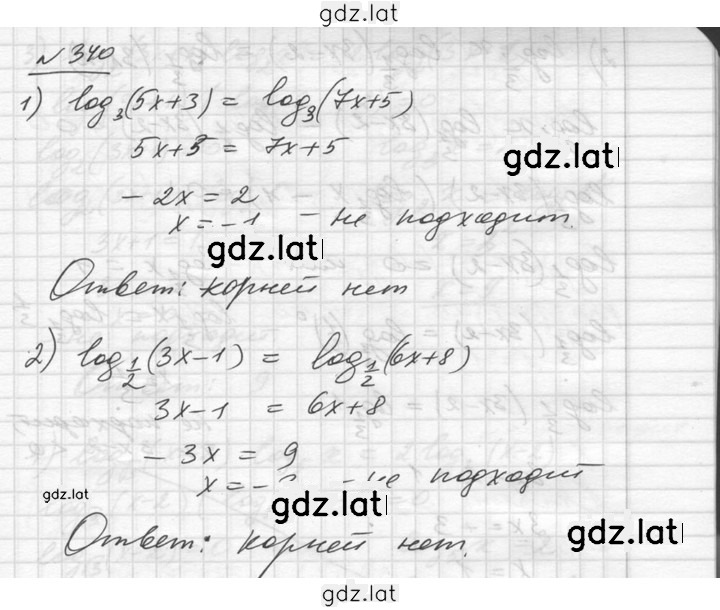 gdz.lat
№ 340
1) log₃(5x+3) = log₃(7x+5)
5x+3 = 7x+5
gdz.lat
– 2x = 2
x = – 1 – не подходит.
gdz.lat
Ответ: корней нет
2) log½(3x–1) = log½(6x+8)
3x–1 = 6x+8
– 3x = 9
x = – не подходит
gdz.lat
gdz.lat
gdz.lat
Ответ: корней нет.
gdz.lat